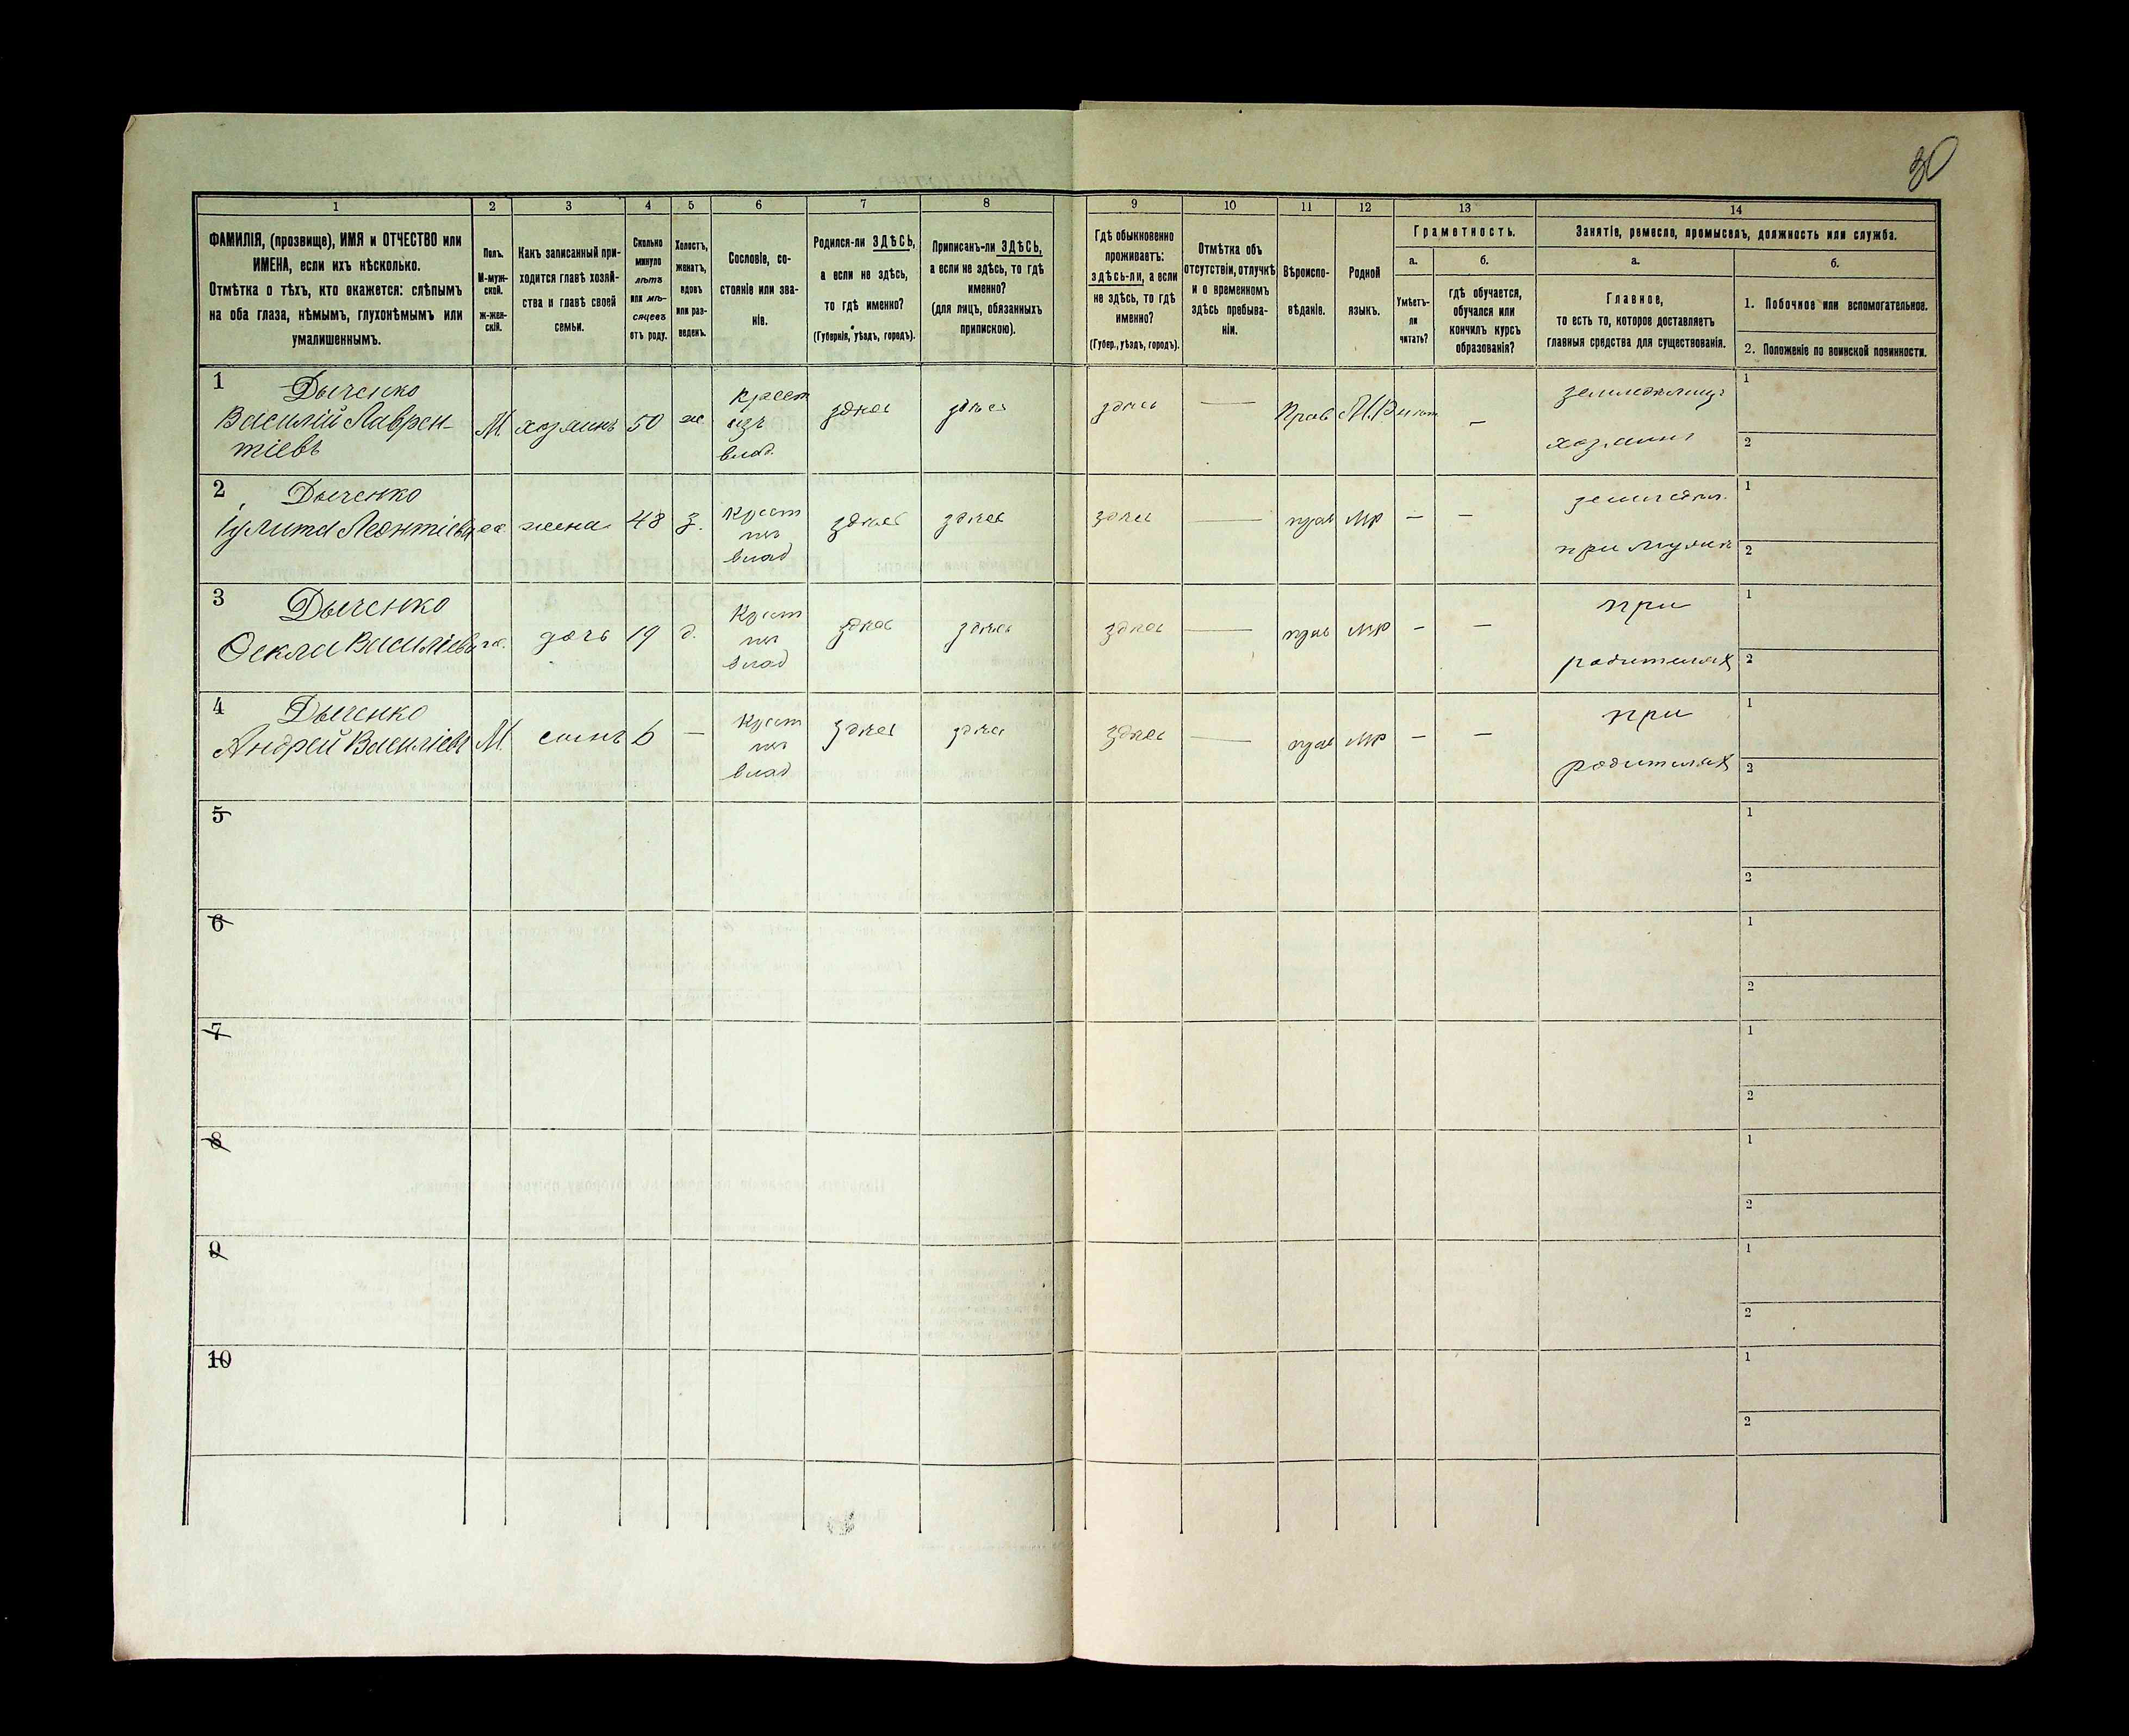 30
1 2 3 4 5 6 7 8 9 10 11 12 13 14
ФАМИЛІЯ, (прозвище), ИМЯ и ОТЧЕСТВО или
ИМЕНА, если ихъ нѣсколько.
Отмѣтка о тѣхъ, кто окажется: слѣпымъ
на оба глаза, нѣмымъ, глухонѣмымъ или
умалишеннымъ.
Полъ.
М-муж-
ской.
ж-жен-
скій.
Какъ записанный при-
ходится главѣ хозяй-
ства и главѣ своей
семьи.
Сколько
минуло
лѣтъ
или мѣ-
сяцевъ
отъ роду.
Холостъ,
женатъ,
вдовъ
или раз-
веденъ.
Сословіе, со-
стояніе или зва-
ніе.
Родился-ли ЗДѢСЬ,
а если не здѣсь,
то гдѣ именно?
(Губернія, уѣздъ, городъ).
Приписанъ-ли ЗДѢСЬ,
а если не здѣсь, то гдѣ
именно?
(для лицъ, обязанныхъ
припискою).
Гдѣ обыкновенно
проживаетъ:
здѣсь-ли, а если
не здѣсь, то гдѣ
именно?
(Губер., уѣздъ, городъ).
Отмѣтка объ
отсутствіи, отлучкѣ
и о временномъ
здѣсь пребыва-
ніи.
Вѣроиспо-
вѣданіе.
Родной
языкъ.
Грамотность.
а.
Умѣетъ-
ли
читать?
б.
гдѣ обучается,
обучался или
кончилъ курсъ
образованія?
Занятіе, ремесло, промыселъ, должность или служба.
а.
Главное,
то есть то, которое доставляетъ
главныя средства для существованія.
б.
1. Побочное или вспомогательное.
2. Положеніе по воинской повинности.
1
Дыченко
Василій Лаврен-
тіевъ
М.
хозяинъ
50
ж
Крест
изъ
влад.
здѣсь
здѣсь
здѣсь
—
Прав
М.Р
—
земледѣлецъ
хозяинъ
1
2
2
Дыченко
Іулита Леонтіева
ж.
жена
48
З.
Крест
изъ
влад
здѣсь
здѣсь
здѣсь
—
прав
мр
—
—
земледѣл.
при мужѣ
1
2
3
Дыченко
Ѳекла Васильева
ж.
дочь
19
д.
Крест
изъ
влад
здѣсь
здѣсь
здѣсь
—
прав
мр
—
—
при
родителях
1
2
4
Дыченко
Андрей Василіевъ
М
сынъ
6
—
Крест
изъ
влад
здѣсь
здѣсь
здѣсь
—
прав
мр
—
—
при
родителях
1
2
5
1
2
6
1
2
7
1
2
8
1
2
9
1
2
10
1
2